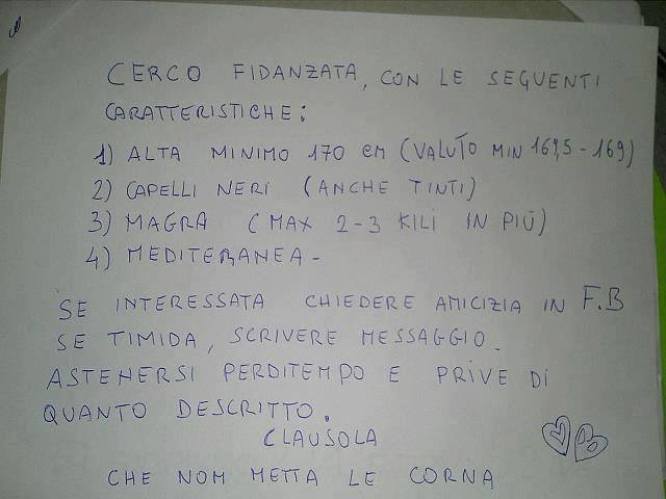 CERCO FIDANZATA, CON LE SEGUENTI
CARATTERISTICHE:
1) ALTA MINIMO 170 cm (VALUTO MIN 169,5 - 169)
2) CAPELLI NERI (ANCHE TINTI)
3) MAGRA (MAX 2-3 KILI IN PIÙ)
4) MEDITERANEA -
SE INTERESSATA CHIEDERE AMICIZIA IN F.B
SE TIMIDA, SCRIVERE MESSAGGIO.
ASTENERSI PERDITEMPO E PRIVE DI
QUANTO DESCRITTO.
CLAUSOLA
CHE NOM METTA LE CORNA